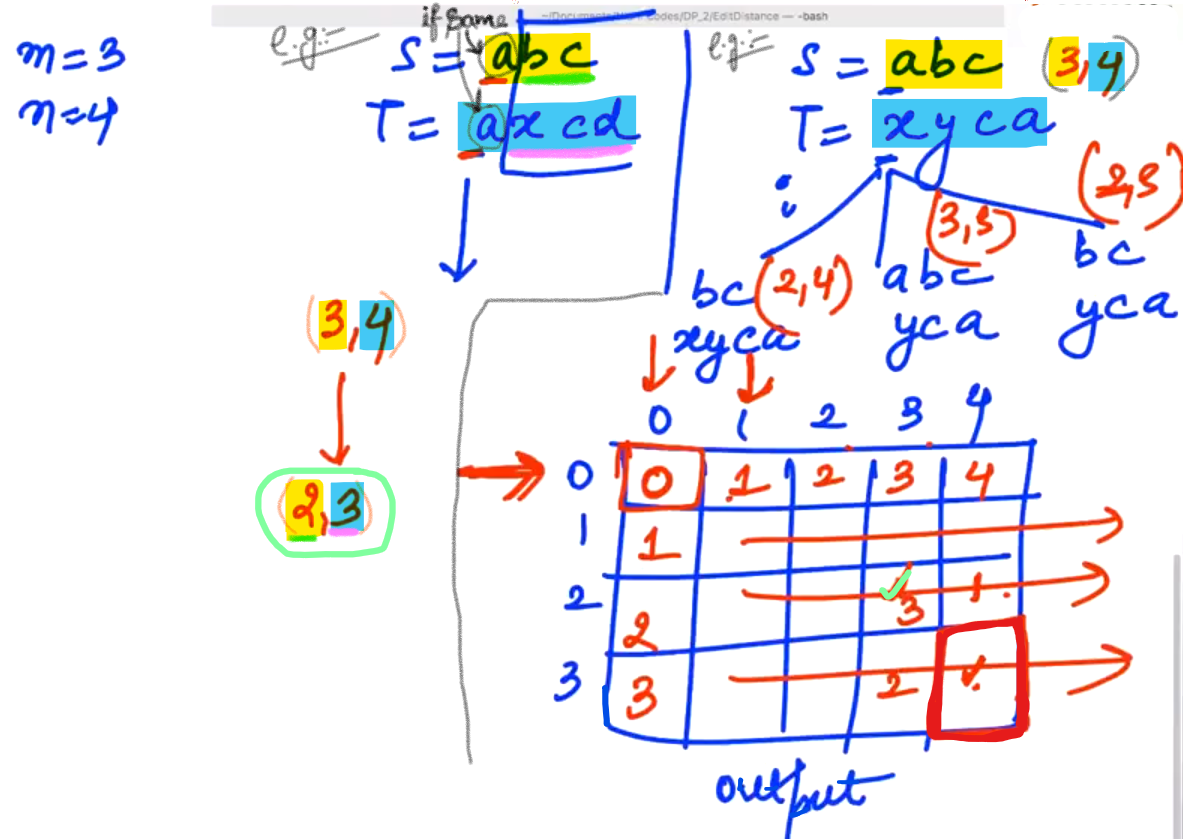 ~/Documents/ Codes/DP_2/EditDistance — -bash
m = 3
n = 4
e.g:-
if same
S = abc
T = axcd
(3,4)
(2,3)
e.g:-
S = abc (3,4)
T = xyca
bc (2,4)
xyca
(3,3)
abc
yca
(2,3)
bc
yca
0 1 2 3 4
0 0 1 2 3 4
1 1
2 2 3 1
3 3 2
output